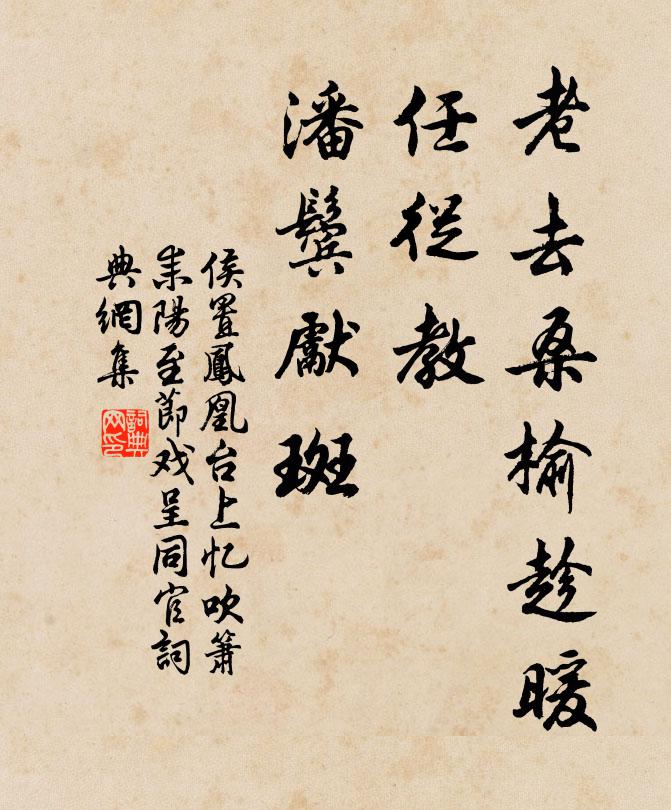 老去桑榆趁暖
任從教
潘鬢獻斑
侯置鳳凰台上忆吹簫
耒陽至節戏呈同官詞
典網集
詞典网印